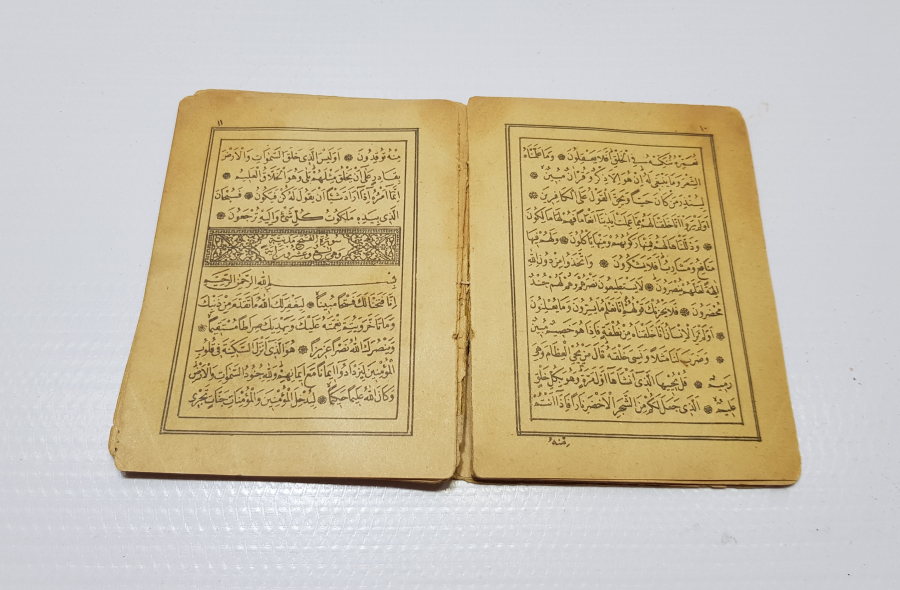 ١٠
نُعَمِّرْهُ نُنَكِّسْهُ فِى الْخَلْقِ اَفَلَا يَعْقِلُونَ ۞ وَمَا عَلَّمْنَاهُ
الشِّعْرَ وَمَا يَنْبَغِى لَهُ اِنْ هُوَ اِلَّا ذِكْرٌ وَقُرْاٰنٌ مُبِينٌ ۞
لِيُنْذِرَ مَنْ كَانَ حَيًّا وَيَحِقَّ الْقَوْلُ عَلَى الْكَافِرِينَ ۞
اَوَلَمْ يَرَوْا اَنَّا خَلَقْنَا لَهُمْ مِمَّا عَمِلَتْ اَيْدِينَا اَنْعَامًا فَهُمْ لَهَا مَالِكُونَ
۞ وَذَلَّلْنَاهَا لَهُمْ فَمِنْهَا رَكُوبُهُمْ وَمِنْهَا يَأْكُلُونَ ۞ وَلَهُمْ فِيهَا
مَنَافِعُ وَمَشَارِبُ اَفَلَا يَشْكُرُونَ ۞ وَاتَّخَذُوا مِنْ دُونِ اللّٰهِ
اٰلِهَةً لَعَلَّهُمْ يُنْصَرُونَ ۞ لَا يَسْتَطِيعُونَ نَصْرَهُمْ وَهُمْ لَهُمْ جُنْدٌ
مُحْضَرُونَ ۞ فَلَا يَحْزُنْكَ قَوْلُهُمْ اِنَّا نَعْلَمُ مَا يُسِرُّونَ وَمَا يُعْلِنُونَ
۞ اَوَلَمْ يَرَ الْاِنْسَانُ اَنَّا خَلَقْنَاهُ مِنْ نُطْفَةٍ فَاِذَا هُوَ خَصِيمٌ مُبِينٌ
۞ وَضَرَبَ لَنَا مَثَلًا وَنَسِىَ خَلْقَهُ قَالَ مَنْ يُحْيِى الْعِظَامَ وَهِىَ
رَمِيمٌ ۞ قُلْ يُحْيِيهَا الَّذِى اَنْشَاَهَا اَوَّلَ مَرَّةٍ وَهُوَ بِكُلِّ خَلْقٍ
عَلِيمٌ ۞ اَلَّذِى جَعَلَ لَكُمْ مِنَ الشَّجَرِ الْاَخْضَرِ نَارًا فَاِذَا اَنْتُمْ
مِنْهُ
١١
مِنْهُ تُوقِدُونَ ۞ اَوَلَيْسَ الَّذِى خَلَقَ السَّمٰوَاتِ وَالْاَرْضَ
بِقَادِرٍ عَلٰى اَنْ يَخْلُقَ مِثْلَهُمْ بَلٰى وَهُوَ الْخَلَّاقُ الْعَلِيمُ ۞
اِنَّمَا اَمْرُهُ اِذَا اَرَادَ شَيْئًا اَنْ يَقُولَ لَهُ كُنْ فَيَكُونُ ۞ فَسُبْحَانَ
الَّذِى بِيَدِهِ مَلَكُوتُ كُلِّ شَىْءٍ وَاِلَيْهِ تُرْجَعُونَ ۞
سورة الفتح مدنية
وهى تسع وعشرون آية
بِسْمِ اللّٰهِ الرَّحْمٰنِ الرَّحِيمِ
اِنَّا فَتَحْنَا لَكَ فَتْحًا مُبِينًا ۞ لِيَغْفِرَ لَكَ اللّٰهُ مَا تَقَدَّمَ مِنْ ذَنْبِكَ
وَمَا تَاَخَّرَ وَيُتِمَّ نِعْمَتَهُ عَلَيْكَ وَيَهْدِيَكَ صِرَاطًا مُسْتَقِيمًا ۞
وَيَنْصُرَكَ اللّٰهُ نَصْرًا عَزِيزًا ۞ هُوَ الَّذِى اَنْزَلَ السَّكِينَةَ فِى قُلُوبِ
الْمُؤْمِنِينَ لِيَزْدَادُوا اِيمَانًا مَعَ اِيمَانِهِمْ وَلِلّٰهِ جُنُودُ السَّمٰوَاتِ وَالْاَرْضِ
وَكَانَ اللّٰهُ عَلِيمًا حَكِيمًا ۞ لِيُدْخِلَ الْمُؤْمِنِينَ وَالْمُؤْمِنَاتِ جَنَّاتٍ تَجْرِى